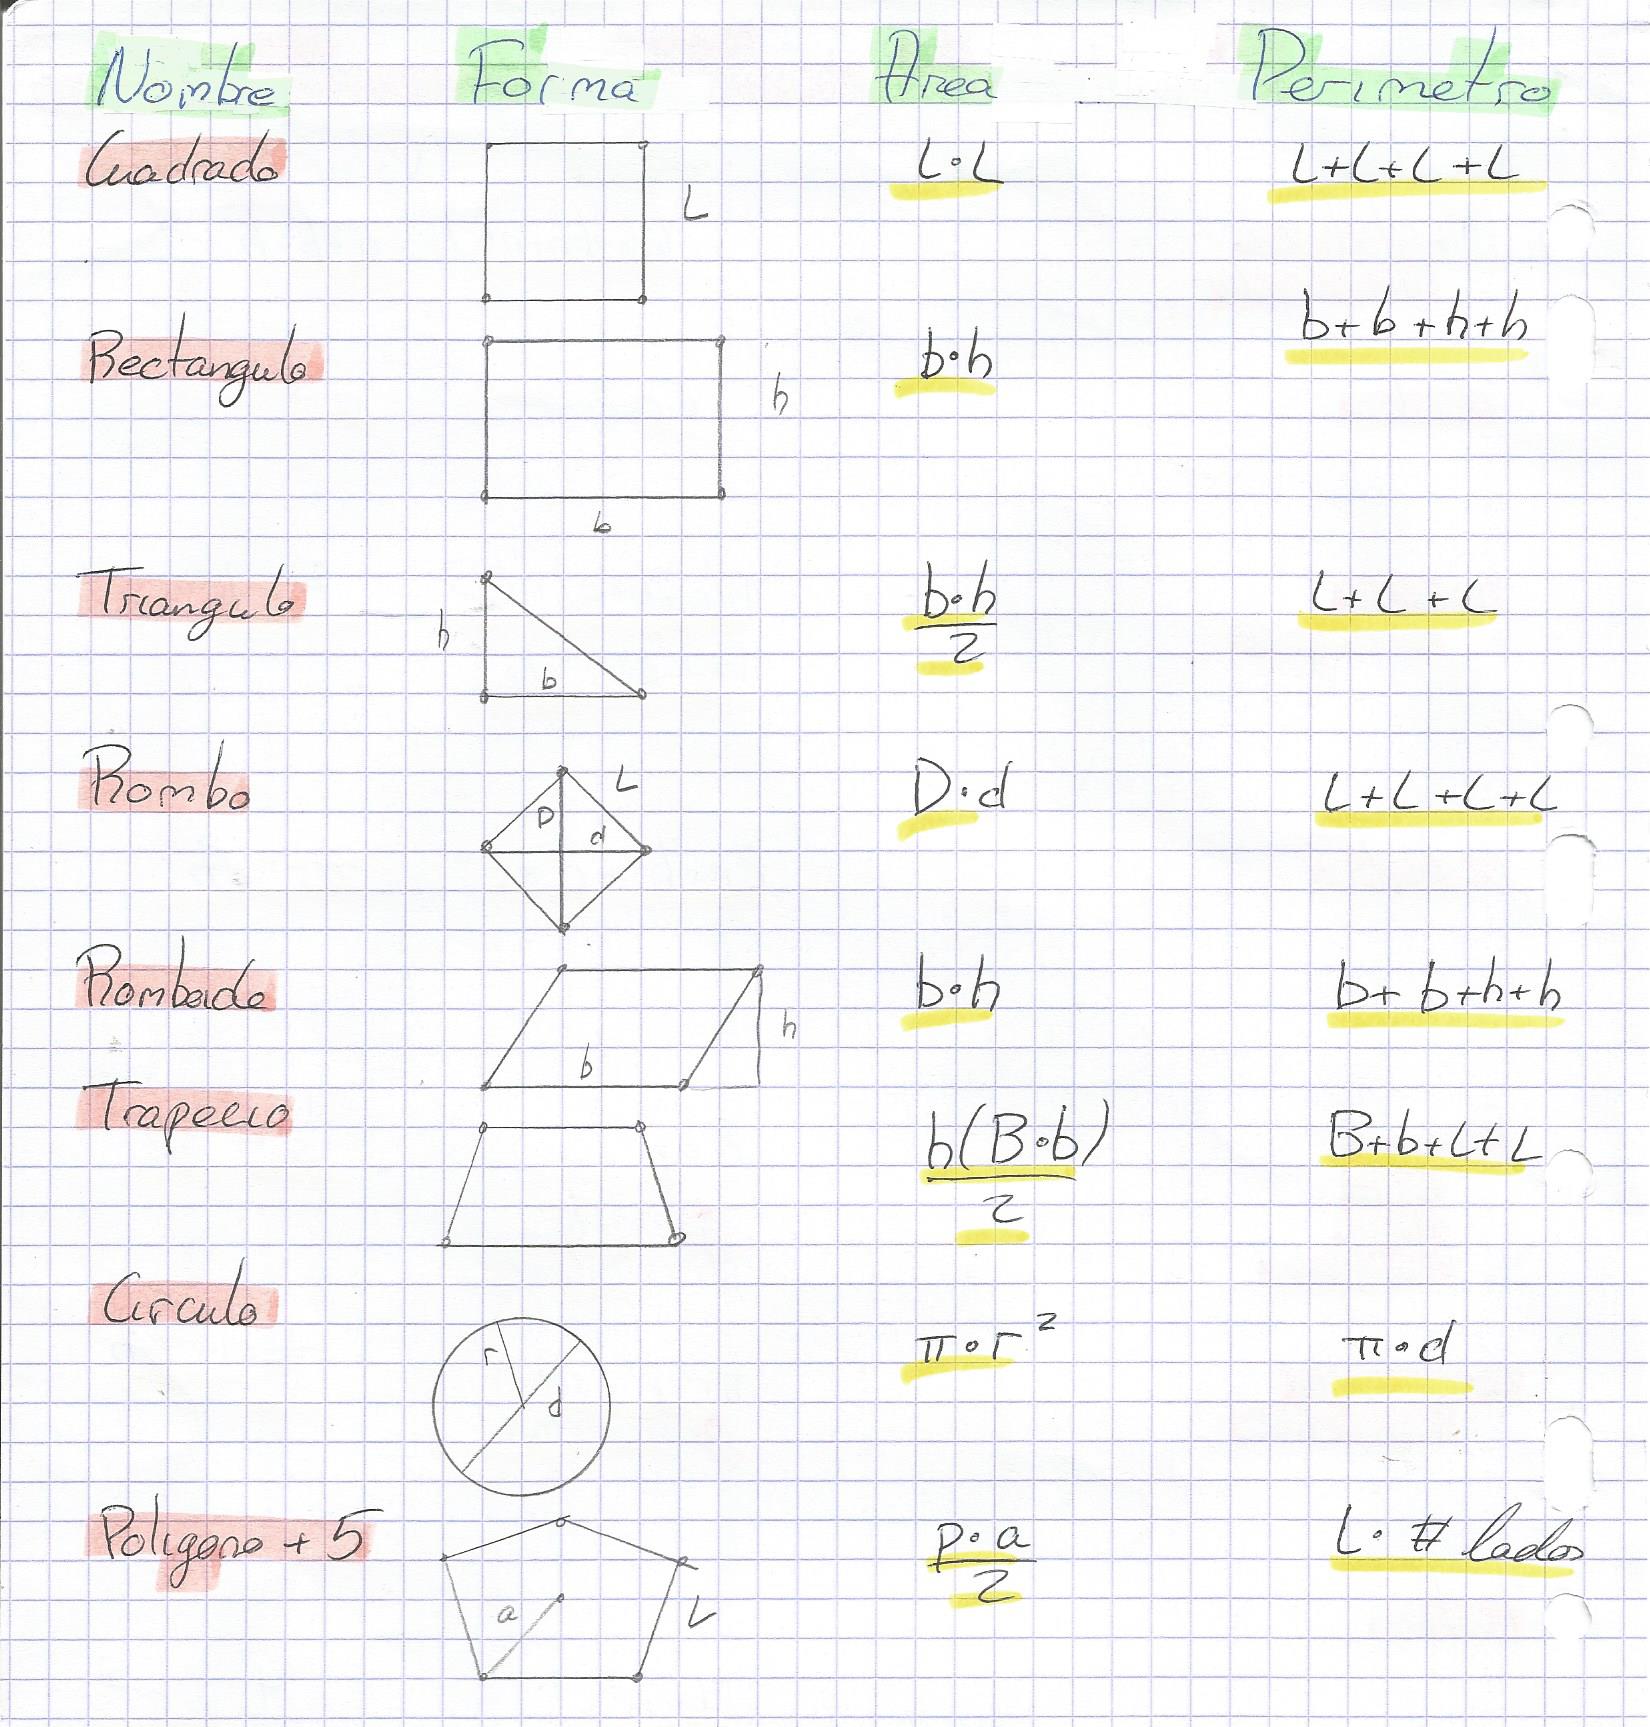 Nombre Forma Area Perimetro
Cuadrado L L·L L+L+L+L
Rectangulo h b b·h b+b+h+h
Triangulo h b b·h/2 L+L+L
Rombo D d L D·d L+L+L+L
Romboide b h b·h b+b+h+h
Trapecio h(B·b)/2 B+b+L+L
Circulo r d π·r² π·d
Poligono + 5 a L p·a/2 L·# lados